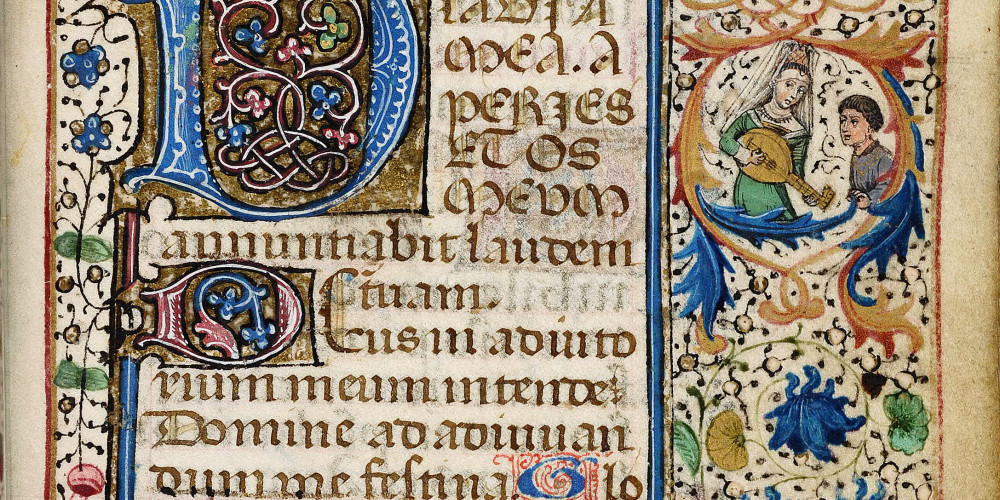 D LABIA
MEA. A
PERIES
ET OS
MEVM
annuntiabit laudem
tuam.
Deus in adiuto
rium meum intende:
Domine ad adiuuan
dum me festina. Glo